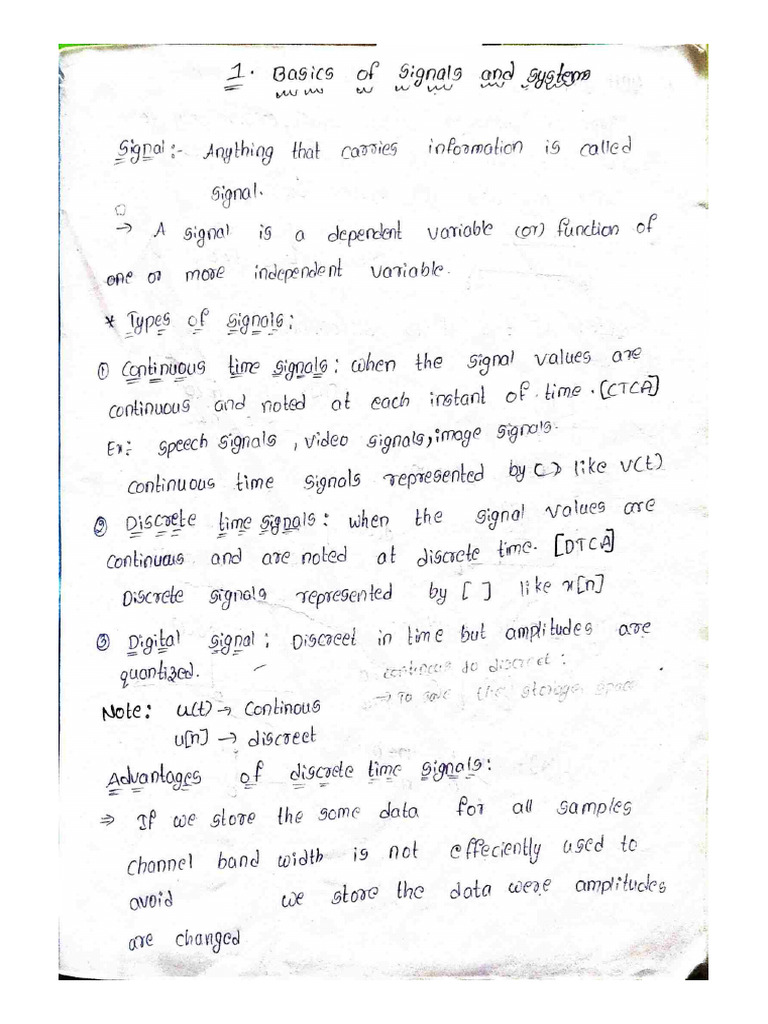 1. Basics of signals and systems
Signal:- Anything that carries information is called
signal.
→ A signal is a dependent variable (or) function of
one or more independent variable.
* Types of signals:
① Continuous time signals: when the signal values are
continuous and noted at each instant of time. [CTCA]
Ex: speech signals, video signals, image signals.
continuous time signals represented by ( ) like v(t)
② Discrete time signals: when the signal values are
continuous and are noted at discrete time. [DTCA]
Discrete signals represented by [ ] like x[n]
③ Digital signal: Discreet in time but amplitudes are
quantized.
continous to discreet:
→ To save the storage space
Note: u(t) → Continous
u[n] → discreet
Advantages of discrete time signals:
⇒ If we store the some data for all samples
channel band width is not effeciently used to
avoid we store the data were amplitudes
are changed